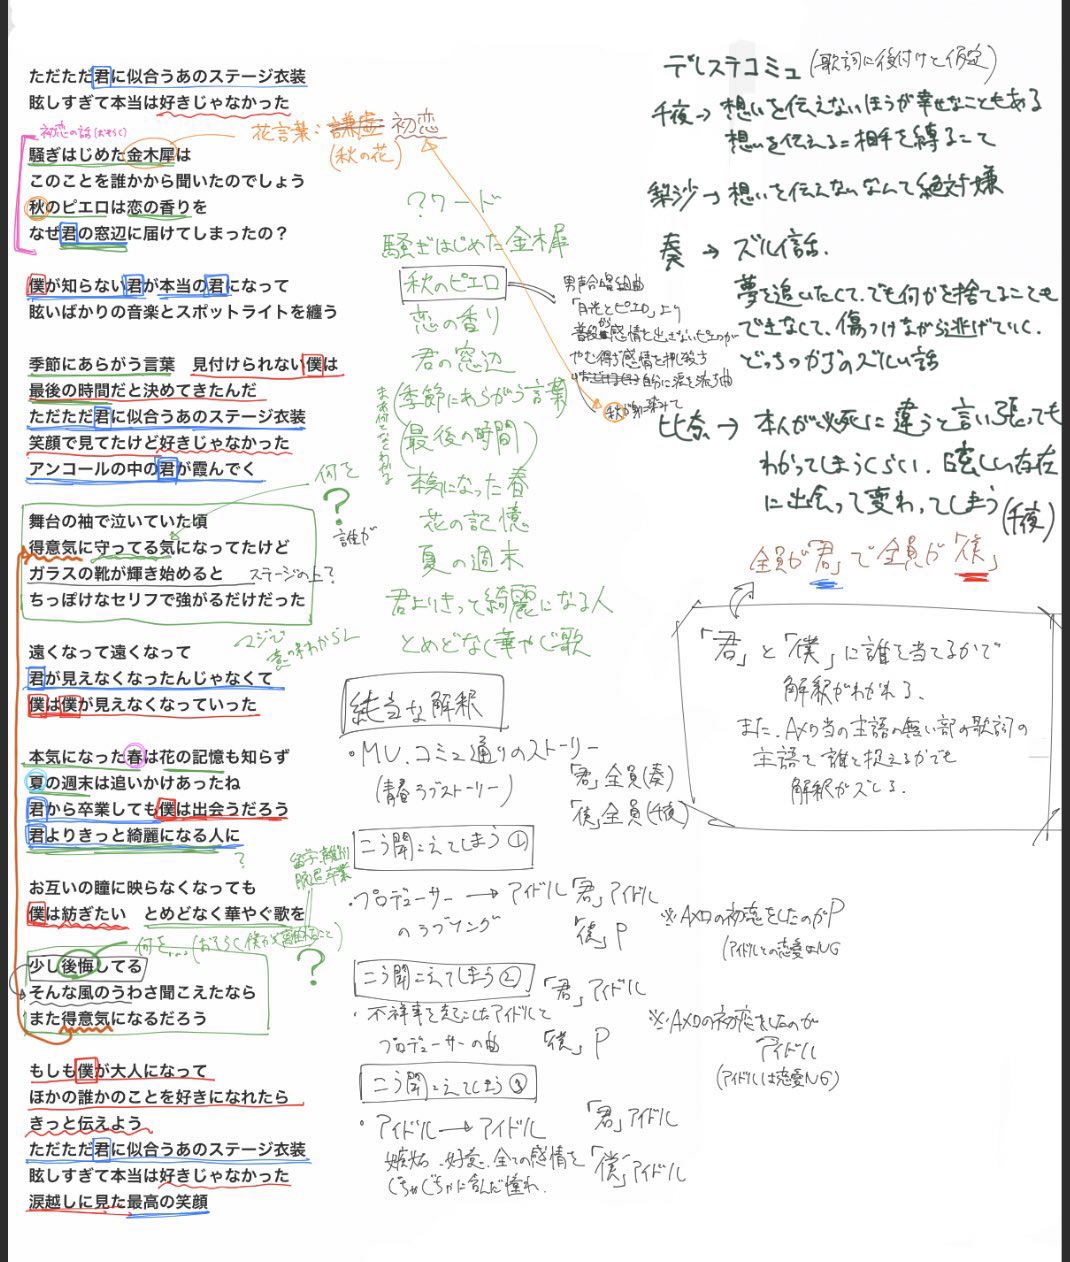 ただただ君に似合うあのステージ衣装
眩しすぎて本当は好きじゃなかった
初恋の話(おそらく)
騒ぎはじめた金木犀は
このことを誰かから聞いたのでしょう
秋のピエロは恋の香りを
なぜ君の窓辺に届けてしまったの？
僕が知らない君が本当の君になって
眩いばかりの音楽とスポットライトを纏う
季節にあらがう言葉　見付けられない僕は
最後の時間だと決めてきたんだ
ただただ君に似合うあのステージ衣装
笑顔で見てたけど好きじゃなかった
アンコールの中の君が霞んでく
舞台の袖で泣いていた頃
得意気に守ってる気になってたけど
ガラスの靴が輝き始めると
ステージの上？
ちっぽけなセリフで強がるだけだった
遠くなって遠くなって
君が見えなくなったんじゃなくて
僕は僕が見えなくなっていった
本気になった春は花の記憶も知らず
夏の週末は追いかけあったね
君から卒業しても僕は出会うだろう
君よりきっと綺麗になる人に
？
お互いの瞳に映らなくなっても
僕は紡ぎたい　とめどなく華やぐ歌を
少し後悔してる
そんな風のうわさ聞こえたなら
また得意気になるだろう
もしも僕が大人になって
ほかの誰かのことを好きになれたら
きっと伝えよう
ただただ君に似合うあのステージ衣装
眩しすぎて本当は好きじゃなかった
涙越しに見た最高の笑顔
花言葉：謙虚 初恋
(秋の花)
？ワード
騒ぎはじめた金木犀
秋のピエロ
恋の香り
君の窓辺
(季節にあらがう言葉
(最後の時間)
本気になった春
花の記憶
夏の週末
君よりきって綺麗になる人
とめどなく華やぐ歌
男声合唱組曲
「月光とピエロ」より
普段感情を出さないピエロが
やむ得ず感情を押し殺す
自分に涙を流す曲
秋が身に染みて
何を
？
誰が
マジで
意味わからし
何を…(おそらく僕から離れること)
？
純当な解釈
・MV、コミュ通りのストーリー
(青春ラブストーリー)
「君」全員(奏)
「僕」全員(千夜)
こう聞こえてしまう①
・プロデューサー→アイドル
のラブソング
「君」アイドル
「僕」P
※Aメロの初恋をしたのがP
(アイドルとの恋愛はNG
こう聞こえてしまう②
・不祥事を起こしたアイドルと
プロデューサーの曲
「君」アイドル
「僕」P
※AメロのAの初恋をしたのが
アイドル
(アイドルは恋愛NG)
こう聞こえてしまう3
・アイドル→アイドル
嫉妬、好意、全ての感情を
ぐちゃぐちゃに含んだ憧れ、
「君」アイドル
「僕」アイドル
デレステコミュ(歌詞に後付けと仮定)
千夜→想いを伝えないほうが幸せなこともある
想いを伝える=相手を縛ること
梨沙→想いを伝えないなんて絶対嫌
奏→ズルイ話。
夢を追いたくて、でも何かを捨てることも
できなくて、傷つけながら逃げていく、
どっちつかずのズルい話
比奈→本人が必死に違うと言い張っても
わかってしまうくらい、眩しい存在
に出会って変わってしまう(千夜)
全員が「君」で全員が「僕」
「君」と「僕」に誰を当てるかで
解釈がわかれる、
また、Aメロ等の主語の無い部の歌詞の
主語を誰と捉えるかでも
解釈がズレる、